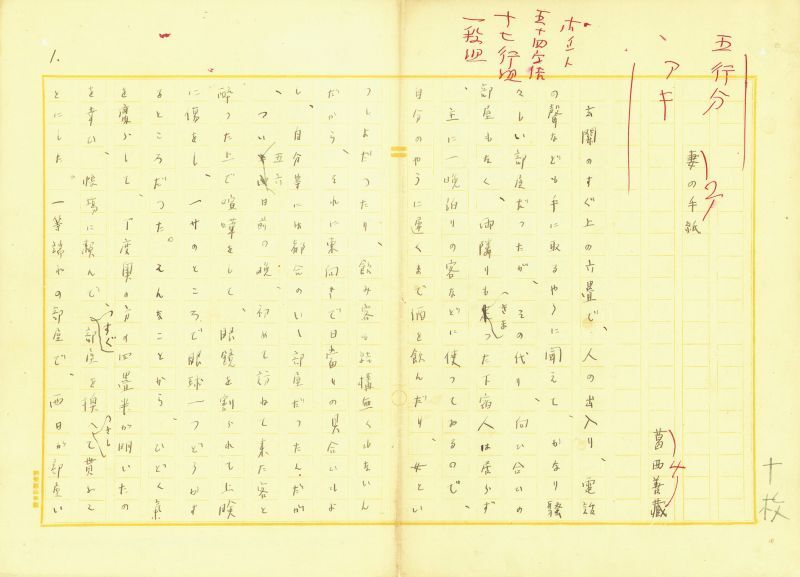 五行分
アキ
ポイント
五十四字詰
十七行組
一段組
妻の手紙
葛西善藏
十枚
1.
玄關のすぐ上の六疊で、人の出入り、電話
の聲なども手に取るやうに聞えて、かなり騷
々しい部屋だつたが、その代り、向ひ合いの
部屋もなく、兩隣りもつきまつた下宿人は居らず
、主に一晩泊りの客などに使つてゐるので、
自分のやうに屋くまで酒を飲んだり、女とい
つしよだつたり、飲み客も遠慮無くゐないん
だから、それに東向きで日當りの具合いもよ
し、自分等には都合のいゝ部屋だつたんだが
、つい五六日前の晩、初めて訪ねて來た客と
醉つた上で喧嘩をして、眼鏡を割られて上瞼
に傷をし、一サのところで眼球一つどうかす
るところだつた。そんなことから、ひどく氣
を腐らして、丁度奧の方の四疊半が明いたの
を幸ひ、帳場に頼んですぐ部屋を換へて貰ふこ
とにした。一等端れの部屋で、西日が部屋い